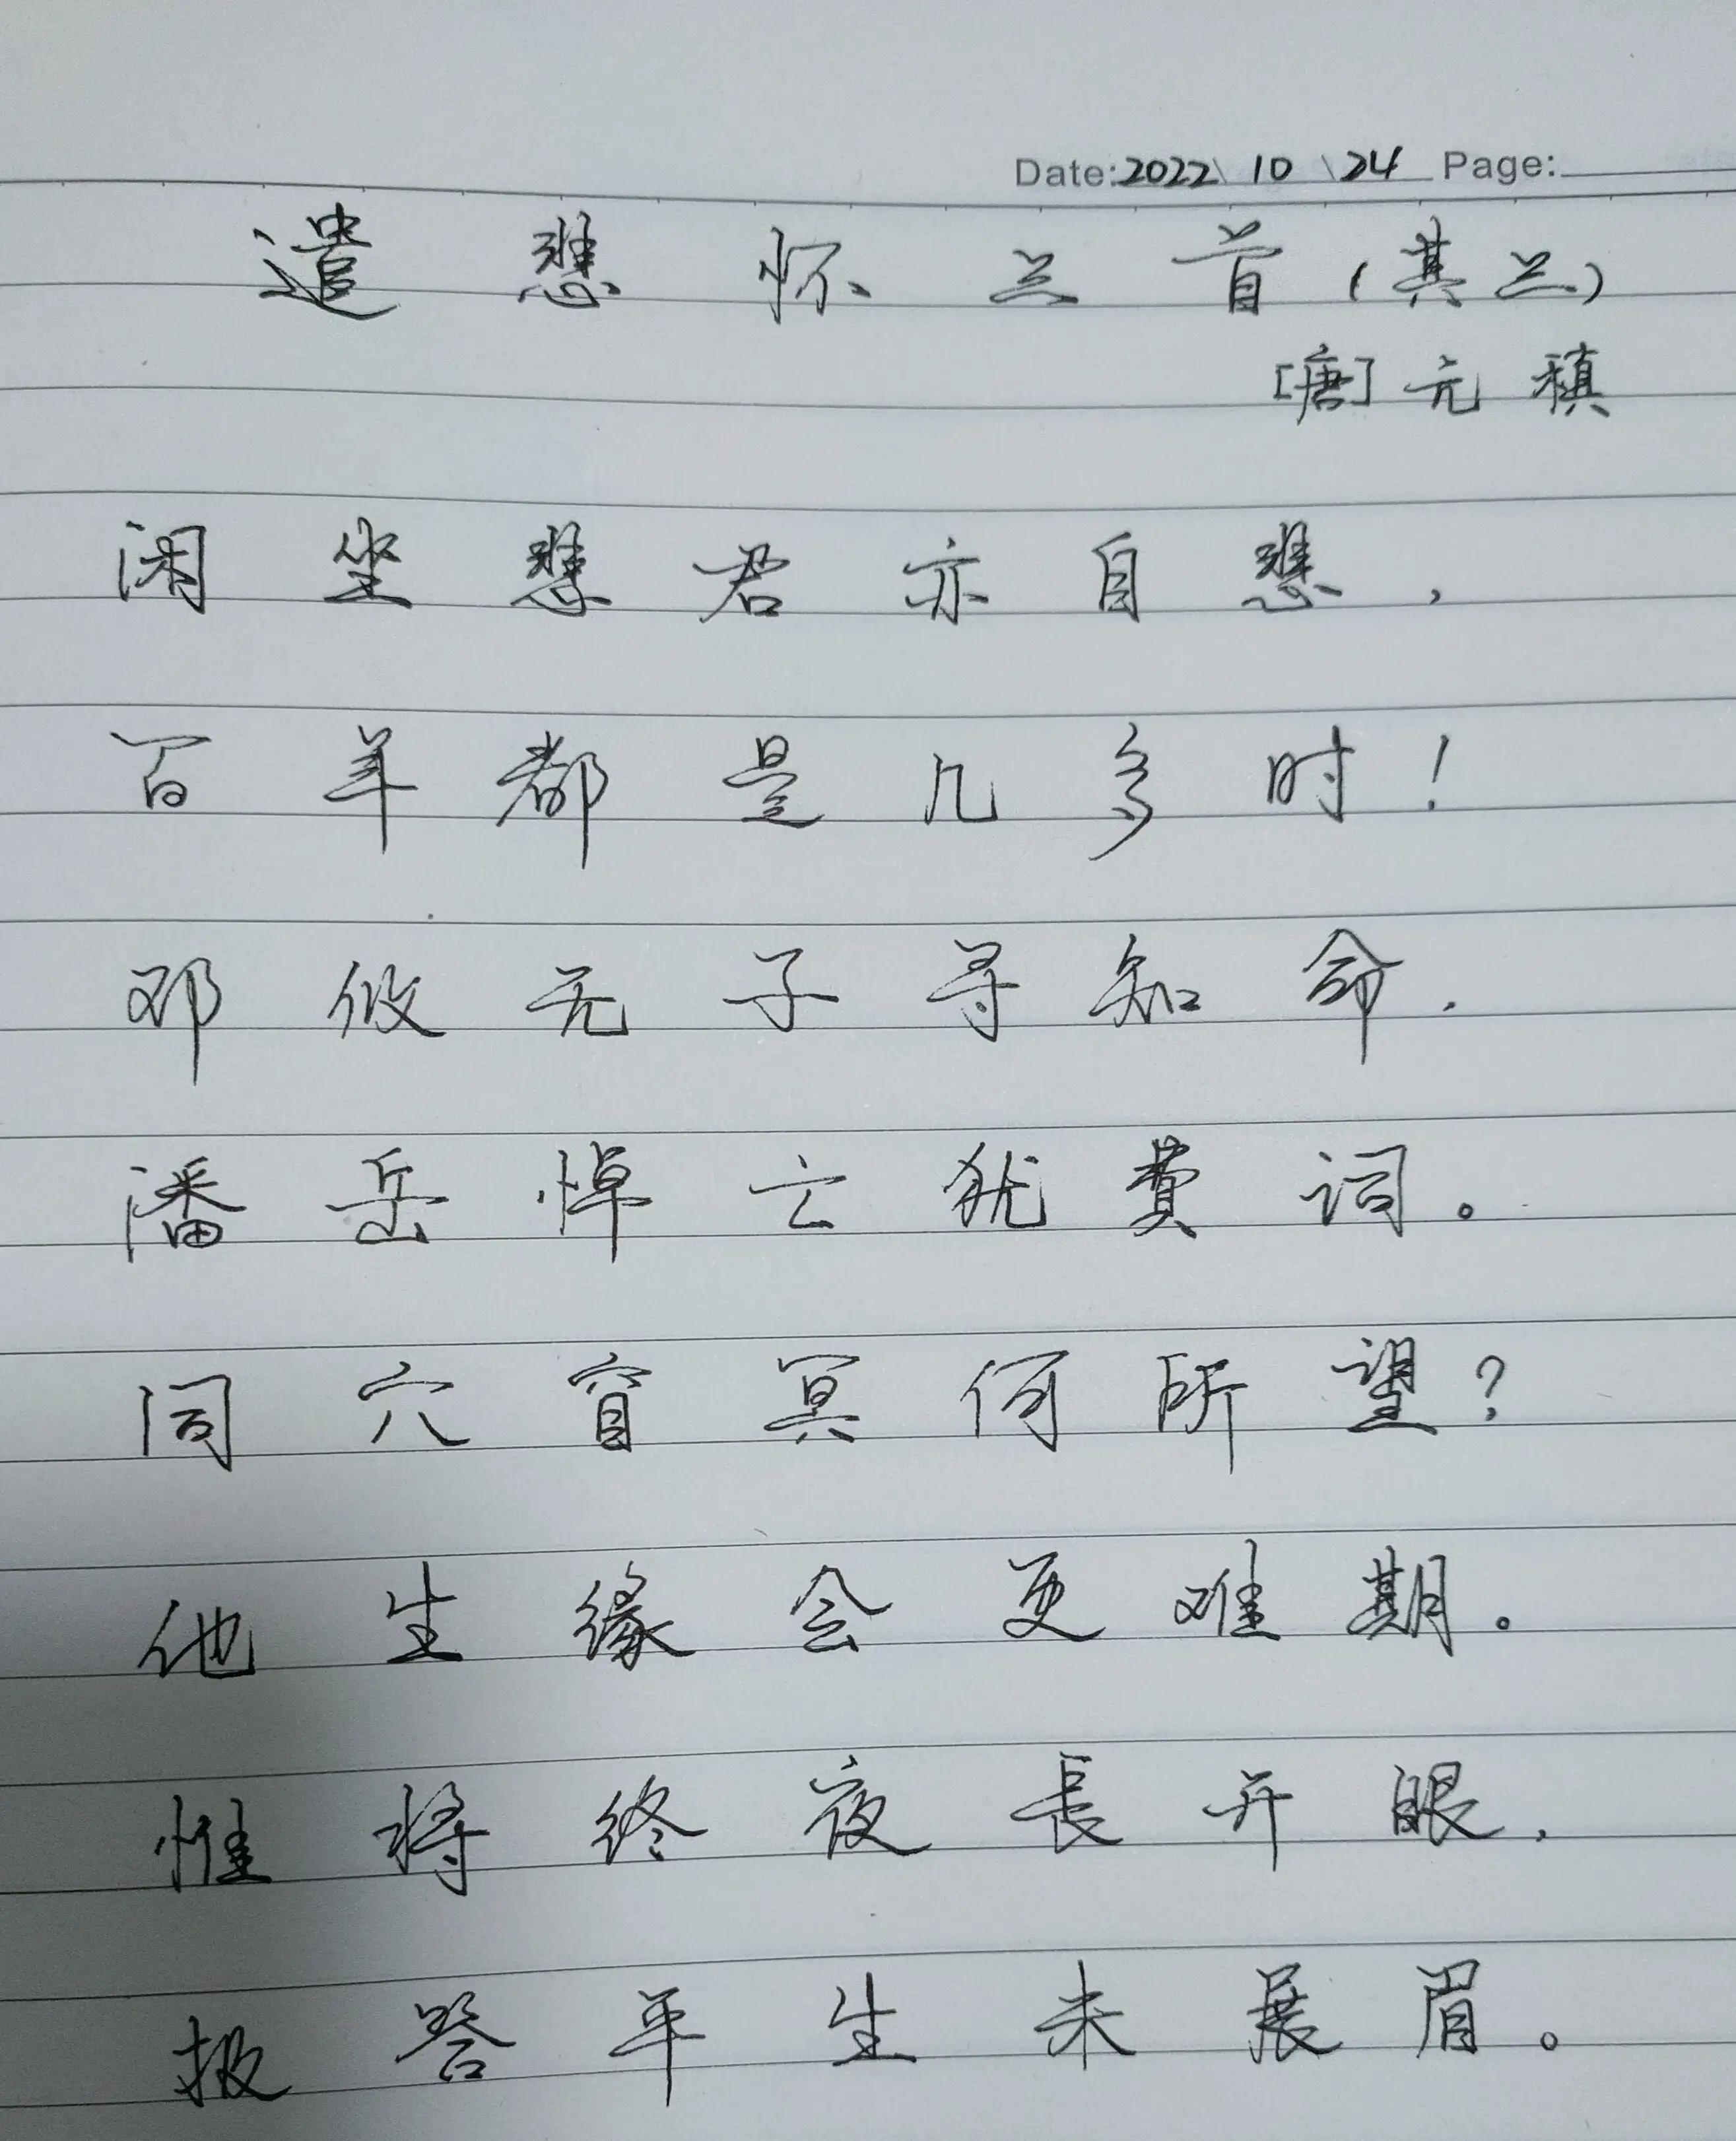 Date:2022\ 10 \24 Page:
遣悲怀三首(其三)
[唐]元稹
闲坐悲君亦自悲,
百年都是几多时!
邓攸无子寻知命,
潘岳悼亡犹费词。
同穴窅冥何所望?
他生缘会更难期。
惟将终夜長开眼,
报答平生未展眉。